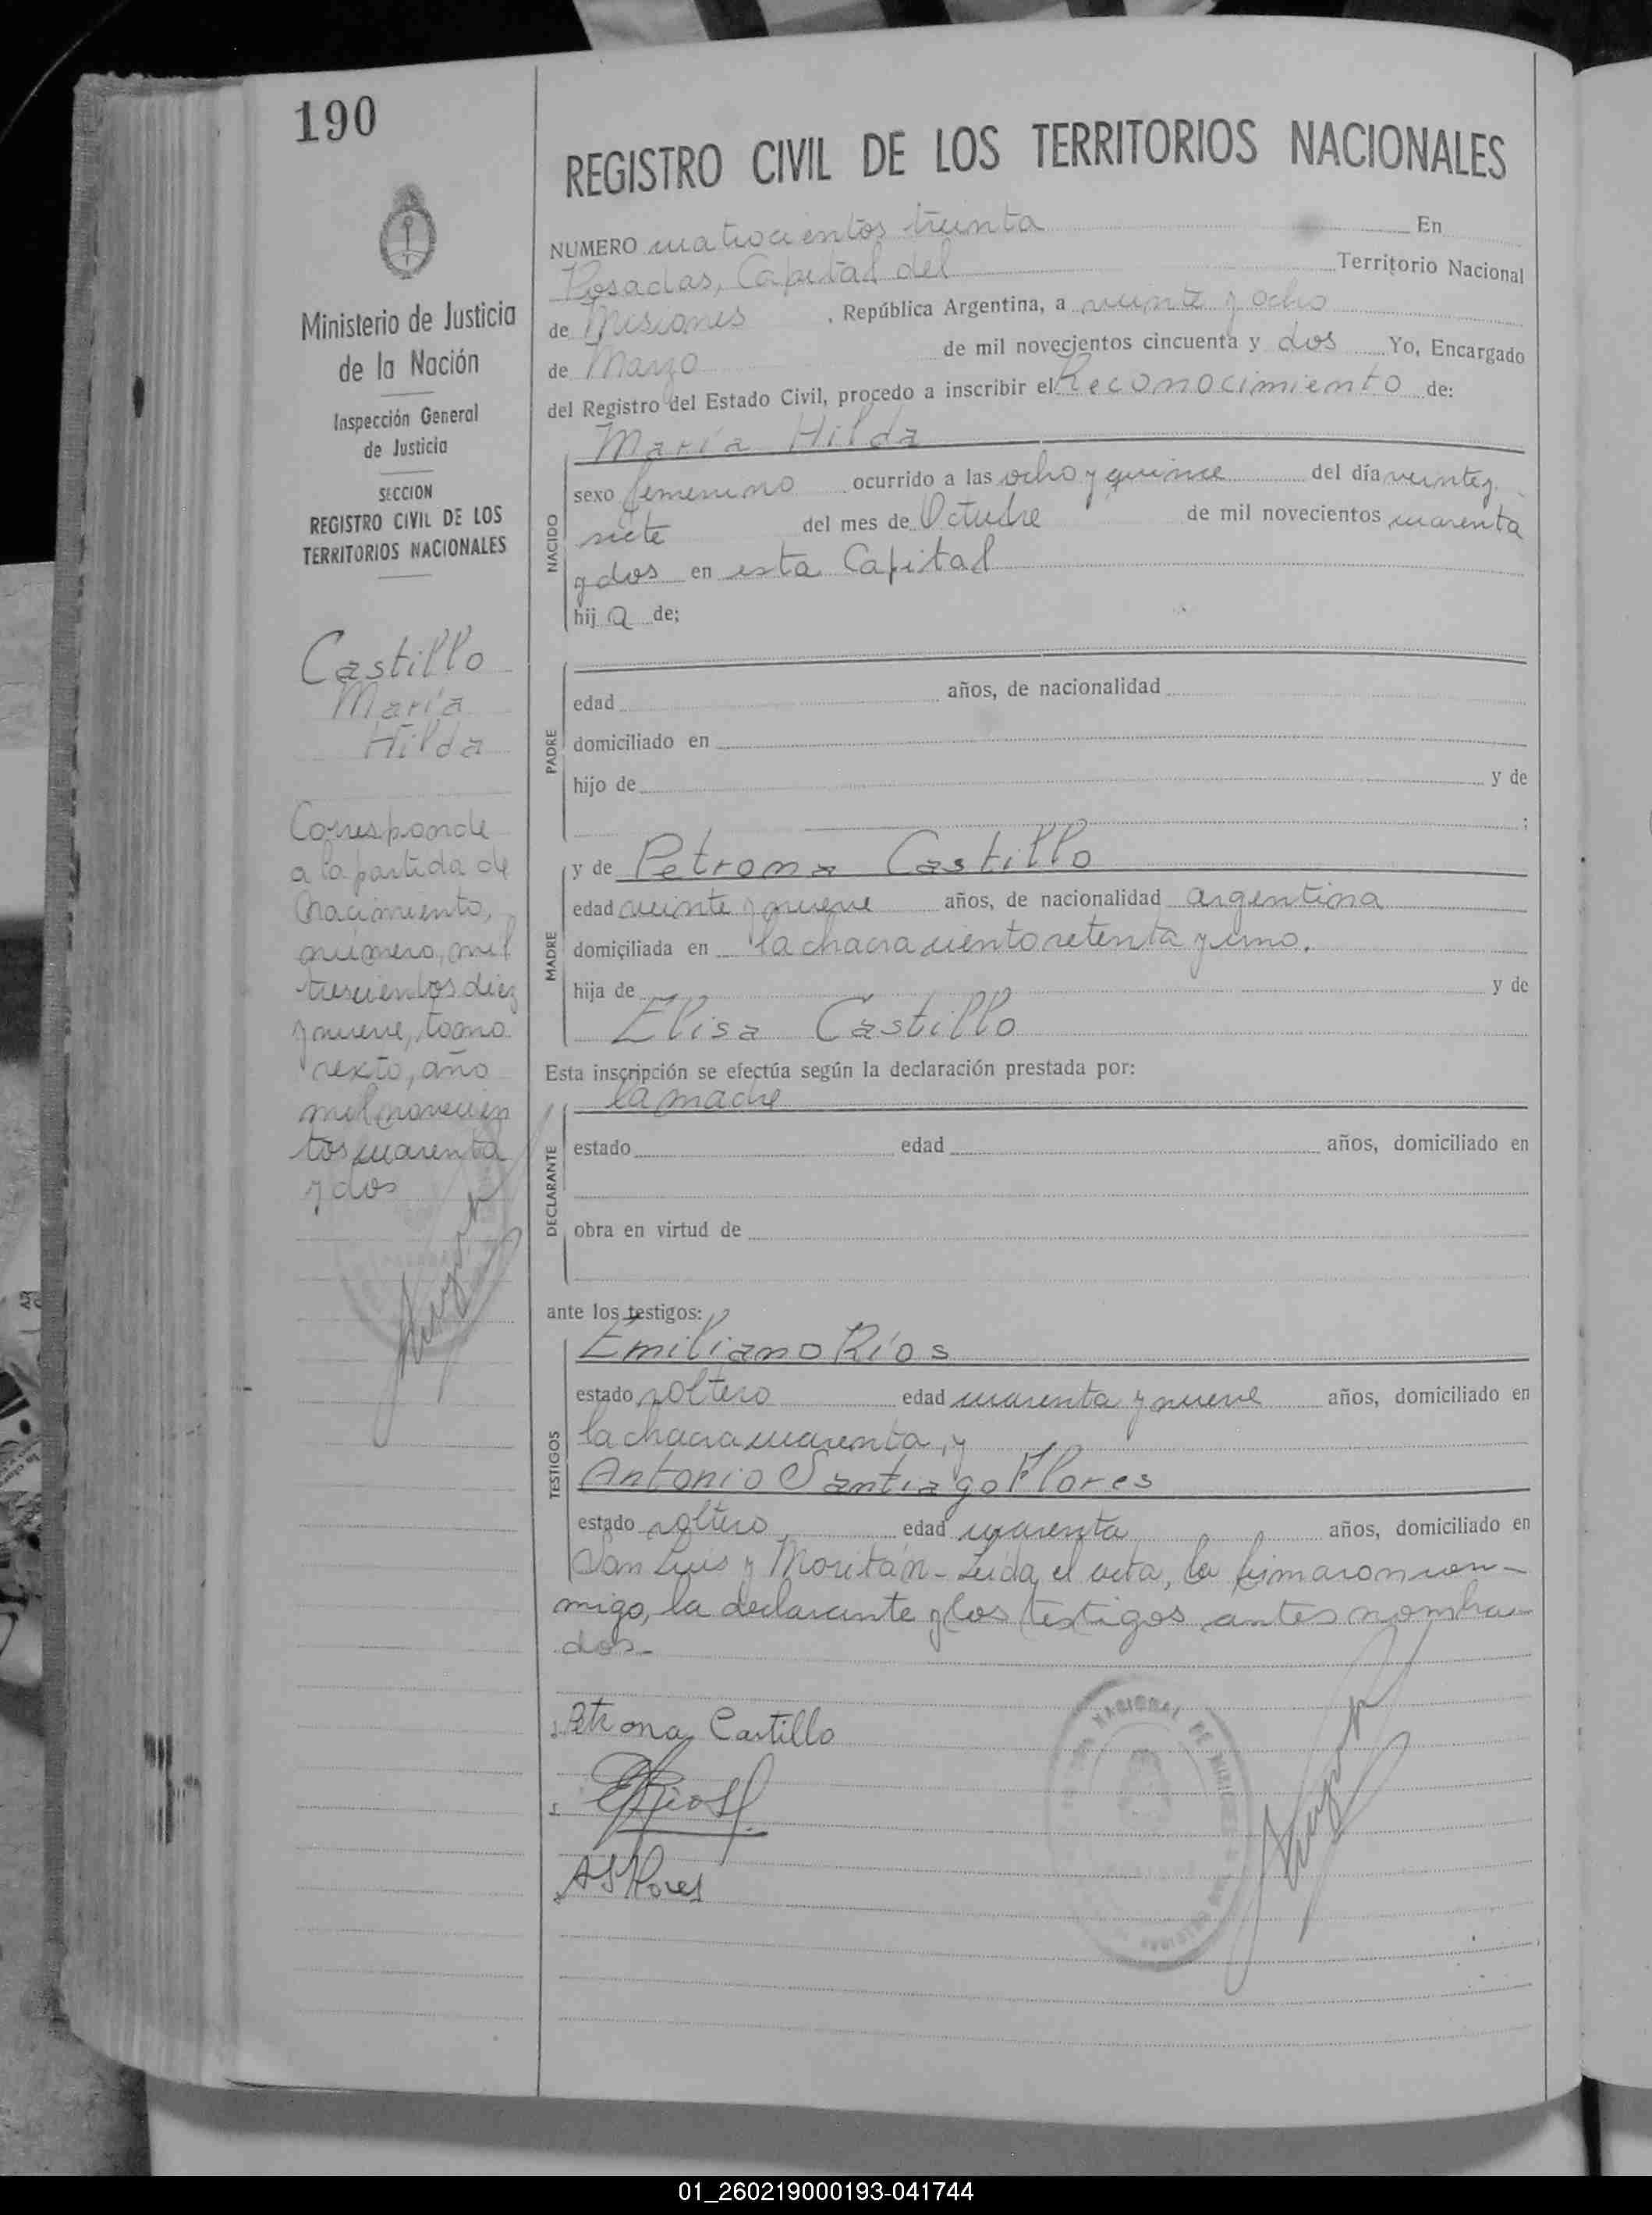 190
REGISTRO CIVIL DE LOS TERRITORIOS NACIONALES
NUMERO cuatrocientos treinta En
Posadas, Capital del Territorio Nacional
de Misiones, República Argentina, a veinte y ocho
de Marzo de mil novecientos cincuenta y dos Yo, Encargado
del Registro del Estado Civil, procedo a inscribir el Reconocimiento de:
María Hilda
NACIDO
sexo femenino ocurrido a las ocho y quince del día veinte y
siete del mes de Octubre de mil novecientos cuarenta
y dos en esta Capital
hij a de;
PADRE
edad años, de nacionalidad
domiciliado en
hijo de y de
;
MADRE
y de Petrona Castillo
edad veinte y nueve años, de nacionalidad argentina
domiciliada en la chacra ciento setenta y uno.
hija de y de
Elisa Castillo
Esta inscripción se efectúa según la declaración prestada por:
la madre
DECLARANTE
estado edad años, domiciliado en
obra en virtud de
ante los testigos:
Emiliano Ríos
TESTIGOS
estado soltero edad cuarenta y nueve años, domiciliado en
la chacra cuarenta, y
Antonio Santiago Flores
estado soltero, edad cuarenta años, domiciliado en
San Luis y Moritán - Leida el acta, la firmaron con-
migo, la declarante y los testigos antes nombra-
dos-
Petrona Castillo
ERios
ASFlores
Ministerio de Justicia
de la Nación
Inspección General
de Justicia
SECCION
REGISTRO CIVIL DE LOS
TERRITORIOS NACIONALES
Castillo
María
Hilda
Corresponde
a la partida de
Nacimiento,
número, mil
trescientos diez
y nueve, tomo
sexto, año
mil novecien
tos cuarenta
y dos
01_260219000193-041744